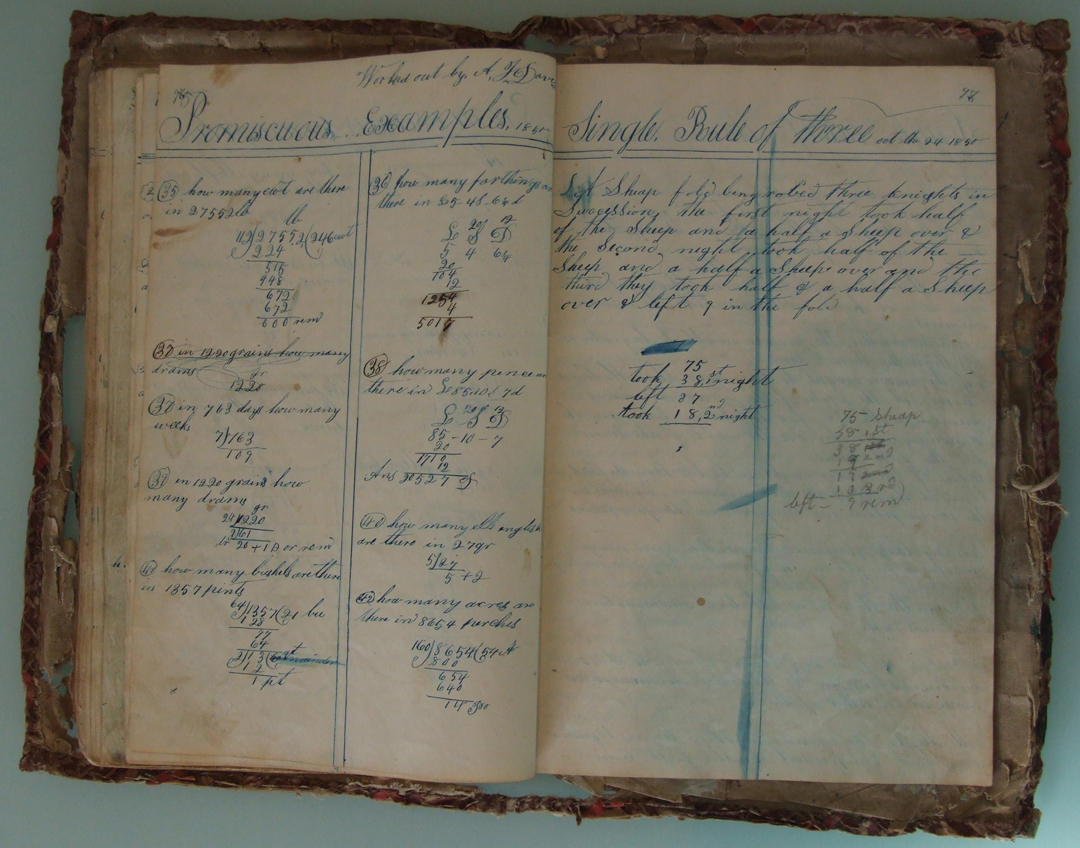 Worked out by A,
78
Promiscuous Examples, 1850
35 how many cwt are there
in 27552 lb
lb
112)27552(246 cwt
224
515
448
672
672
000 rem
37 in 1220 grains how many
drams
gr
1220
37 in 763 days how many
weeks
7)763
109
39 in 1220 grains how
many drams
gr
1220
20 + 1 or rem
how many bushels are there
in 1357 pints
64)1357(21 bu
128
77
64
2)13(
12
1 pt
36 how many farthings
there in £5-4S-6¼d
£ 20S 12D
5 4 6¼
20
104
12
1254
4
5017
38 how many pence
there in £85-10S 7d
£ 20S 12D
85-10-7
20
1710
12
Ans 20527 D
40 how many ells
are there in 27 qr
5)27
5+2
42 how many acres
there in 8654 perches
160)8654(54 A
800
654
640
14
77
Single, Rule of three oct the 24 1850
Sheap fold being robed three knights in
Succession, the first night took half
of the Sheep and a half a sheep over &
the Second night took half of the
Sheep and a half a Sheep over and the
third they took half & a half a Sheep
over & left 9 in the fold
75
took 38,1st night
left 37
took 18,2nd night
75 Sheap
38 1st
left - 9 rem